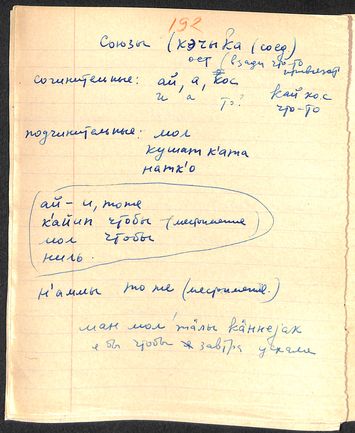 192
Союзы (кэчыка (соед)
ост (взади что-то
сочинительные: ай, а, кос привязат
и а то? кай кос
что-то
подчинительные: мол
кушат к'ата
натк'о
ай - и, тоже
к'айип чтобы (местоимение)
мол чтобы
ниль.
н'аммы то же (местоимение.)
ман мол' тӓлы кӓннеjак
я бы чтобы завтра уехали